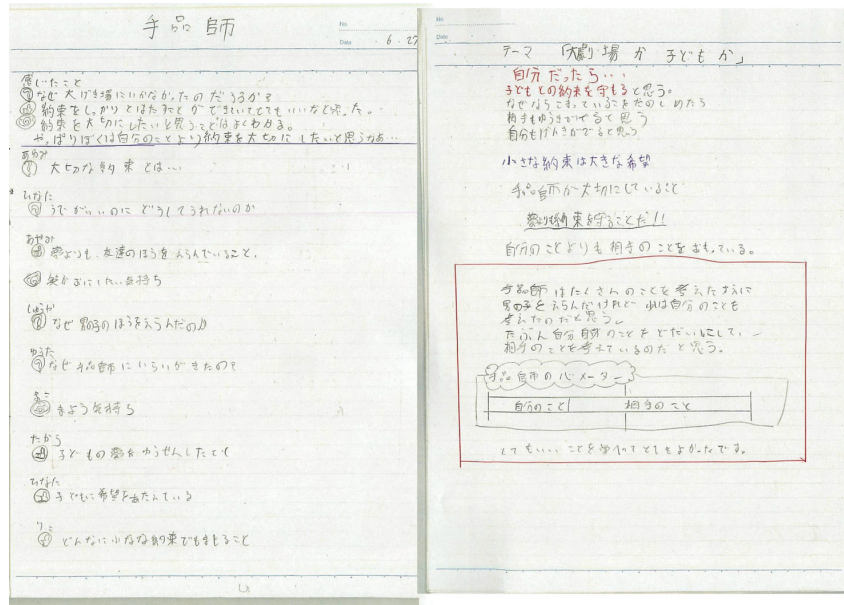 手品師
No.
Date 6.27
感じたこと
なぜ大げき場にいかなかったのだろうか?
約束をしっかりとはたすことができていてとてもいいなと思った。
約束を大切にしたいと思うことはよくわかる。
やっぱりぼくは自分のことより約束を大切にしたいと思うなあ…
大切な約束とは…
ひなた
うでがいいのにどうしてうれないのか
あやみ
夢よりも、友達のほうをえらんでいること、
笑がおにしたい気持ち
しゅうか
なぜ男の子のほうをえらんだのか
ゆうた
なぜ手品師にいらいがきたの?
まよう気持ち
たから
子どもの夢をゆうせんしたとも
ひなた
子どもに希望をあたえている
りこ
どんなに小さな約束でもまもること
No.
Date
テーマ 「大劇場か子どもか」
自分だったら…
子どもとの約束を守もると思う。
なぜならこまっている
相手もゆうきがでると思う
自分もげんきがでると思う
小さな約束は大きな希望
手品師が大切にしていること
夢より約束を守ることだ!!
自分のことよりも相手のことをおもっている。
手品師はたくさんのことを考えたすえに
男の子をえらんだけれど、 は自分のことも
考えたのだと思う。
たぶん自分自身のことをどだいにして、
相手のことを考えているのだと思う。
手品師の心メーター
自分のこと 相手のこと
とてもいいことを学べてとてもよかったです。